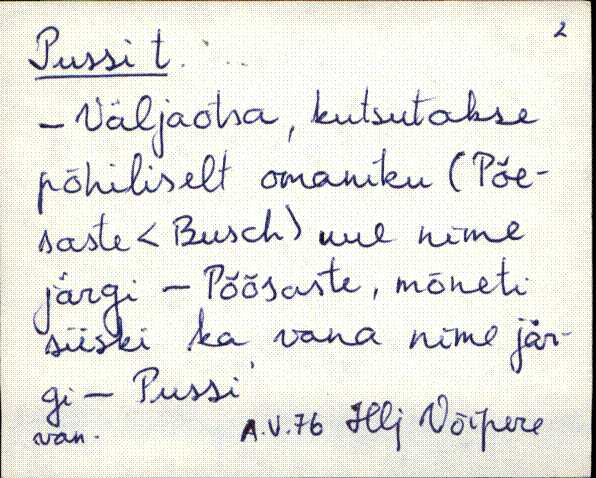 2
Pussi t.
– Väljaotsa, kutsutakse
põhiliselt omaniku (Põe-
saste < Busch) uue nime
järgi – Põõsaste, mõneti
siiski ka vana nime jär-
gi – Pussi
van. A.V.76 Hlj Võipere